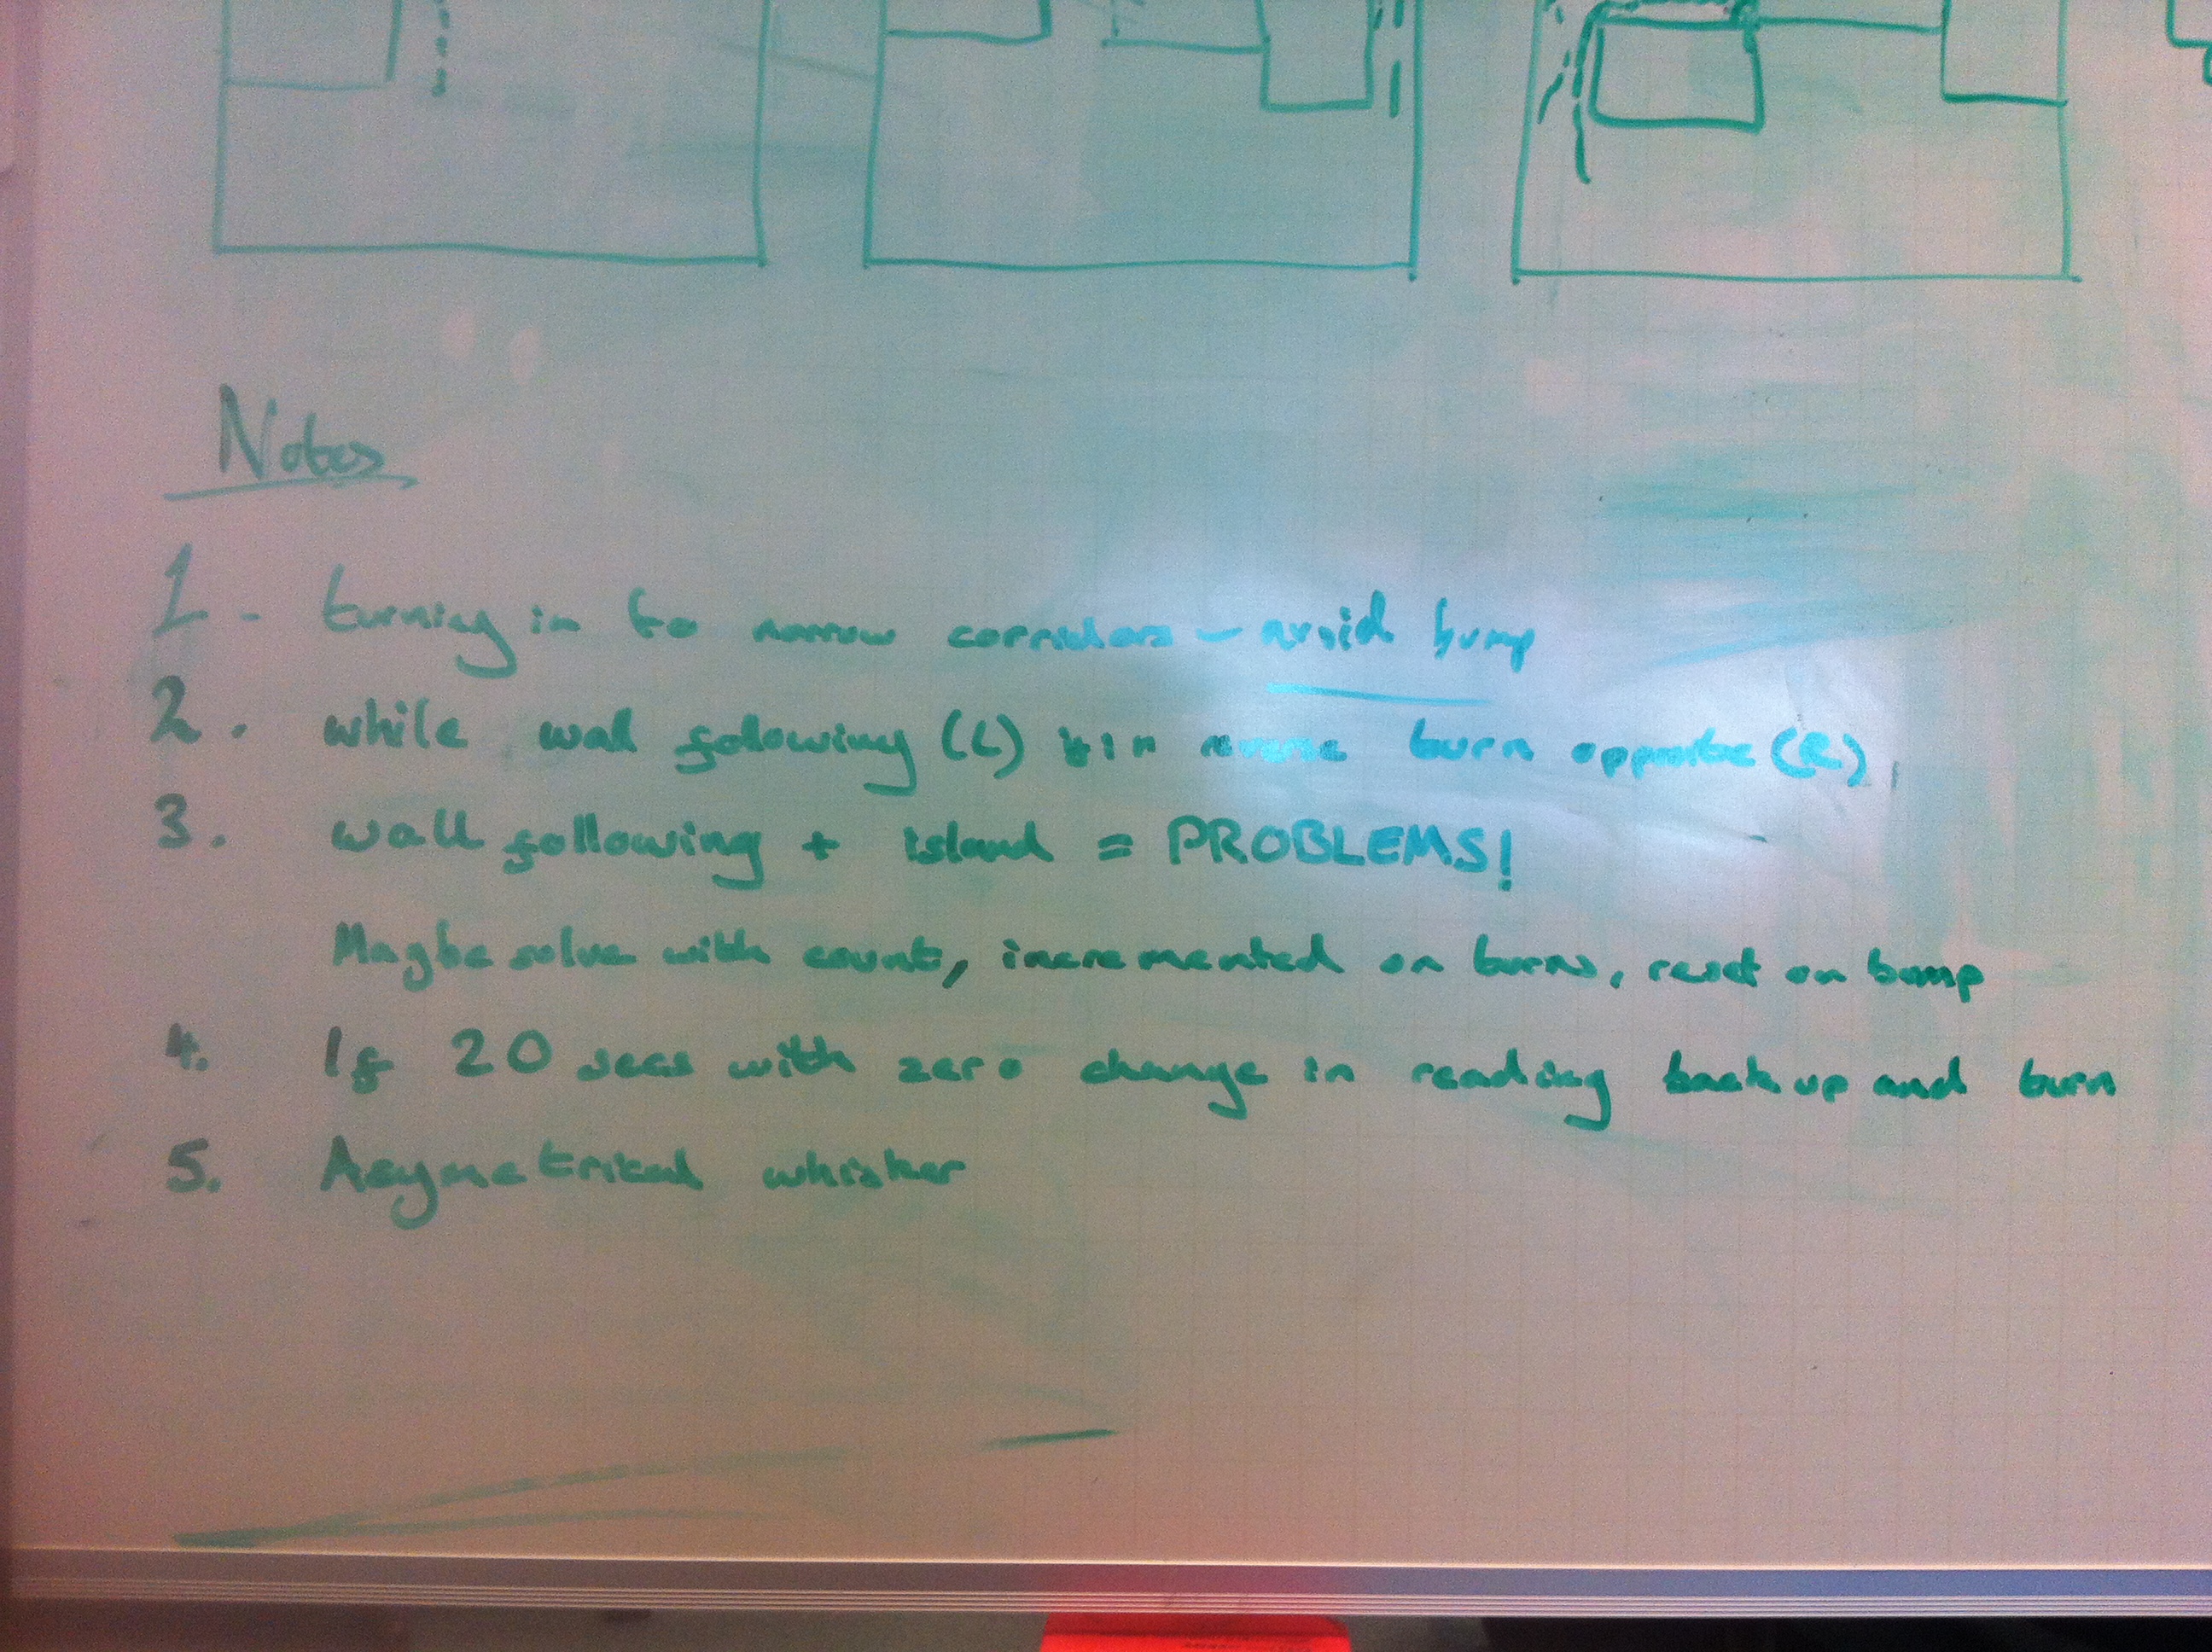 Notes
1 - turning in to narrow corridors - avoid bump
2. while wal folowing (L) in reverse turn opposite (R)
3. wall following + island = PROBLEMS!
Maybe solve with count, incremented on turns, reset on bump
4. If 20 secs with zero change in reading back up and turn
5. Asymetrical whisker